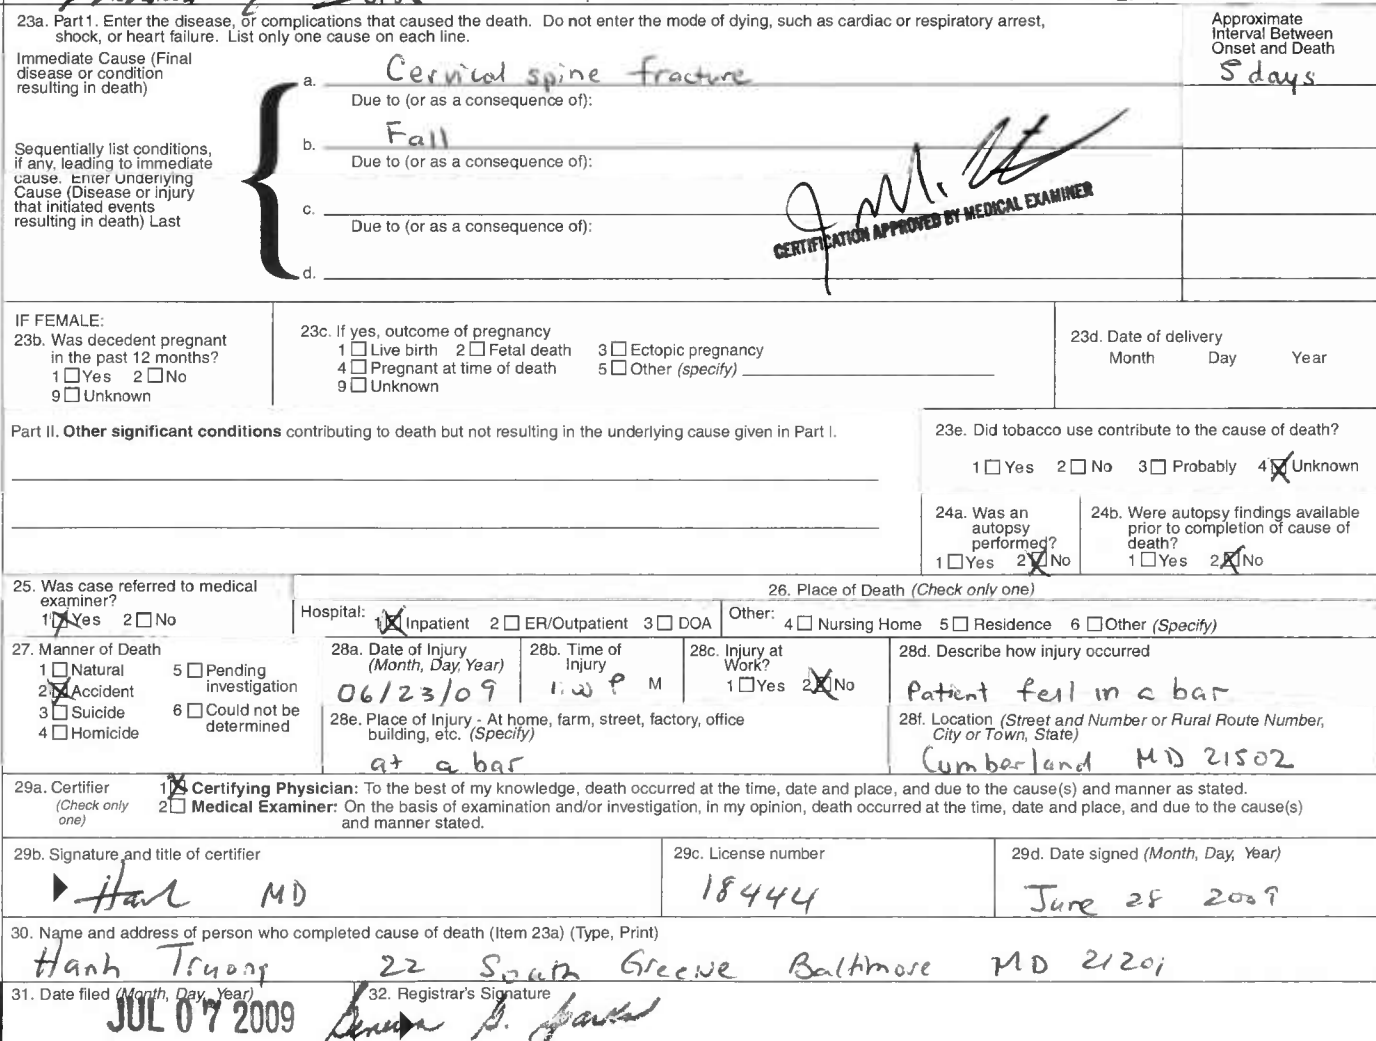 23a. Part 1. Enter the disease, or complications that caused the death. Do not enter the mode of dying, such as cardiac or respiratory arrest,
shock, or heart failure. List only one cause on each line.
Approximate
Interval Between
Onset and Death
Immediate Cause (Final
disease or condition
resulting in death)
a. Cervical spine fracture
5 days
Due to (or as a consequence of):
Sequentially list conditions,
if any, leading to immediate
cause. Enter Underlying
Cause (Disease or injury
that initiated events
resulting in death) Last
b. Fall
Due to (or as a consequence of):
c.
Due to (or as a consequence of):
d.
CERTIFICATION APPROVED BY MEDICAL EXAMINER
IF FEMALE:
23b. Was decedent pregnant
in the past 12 months?
1 Yes 2 No
9 Unknown
23c. If yes, outcome of pregnancy
1 Live birth 2 Fetal death 3 Ectopic pregnancy
4 Pregnant at time of death 5 Other (specify)
9 Unknown
23d. Date of delivery
Month Day Year
Part II. Other significant conditions contributing to death but not resulting in the underlying cause given in Part I.
23e. Did tobacco use contribute to the cause of death?
1 Yes 2 No 3 Probably 4 Unknown
24a. Was an
autopsy
performed?
1 Yes 2 No
24b. Were autopsy findings available
prior to completion of cause of
death?
1 Yes 2 No
25. Was case referred to medical
examiner?
1 Yes 2 No
26. Place of Death (Check only one)
Hospital: 1 Inpatient 2 ER/Outpatient 3 DOA
Other: 4 Nursing Home 5 Residence 6 Other (Specify)
27. Manner of Death
1 Natural 5 Pending
investigation
2 Accident
3 Suicide 6 Could not be
determined
4 Homicide
28a. Date of Injury
(Month, Day, Year)
06/23/09
28b. Time of
Injury
P M
28c. Injury at
Work?
1 Yes 2 No
28d. Describe how injury occurred
Patient fell in a bar
28e. Place of Injury - At home, farm, street, factory, office
building, etc. (Specify)
at a bar
28f. Location (Street and Number or Rural Route Number,
City or Town, State)
Cumberland MD 21502
29a. Certifier
(Check only
one)
1 Certifying Physician: To the best of my knowledge, death occurred at the time, date and place, and due to the cause(s) and manner as stated.
2 Medical Examiner: On the basis of examination and/or investigation, in my opinion, death occurred at the time, date and place, and due to the cause(s)
and manner stated.
29b. Signature and title of certifier
MD
29c. License number
18444
29d. Date signed (Month, Day, Year)
June 28 2009
30. Name and address of person who completed cause of death (Item 23a) (Type, Print)
Hanh Truong 22 South Greene Baltimore MD 21201
31. Date filed (Month, Day, Year)
JUL 07 2009
32. Registrar's Signature